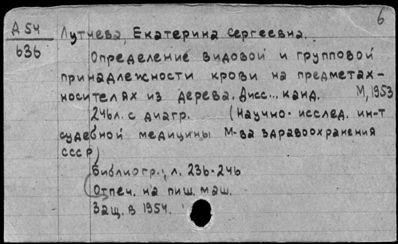 6
А 54
636
Лутчева, Екатерина Сергеевна.
Определение видовой и групповой
принадлежности крови на предметах-
носителях из дерева. Дисс... канд. М, 1953
246л. с диагр. (Научно-исслед. ин-т
судебной медицины М-ва здравоохранения
СССР)
Библиогр.: л. 236-246
Отпеч. на пиш. маш.
Защ. в 1954.